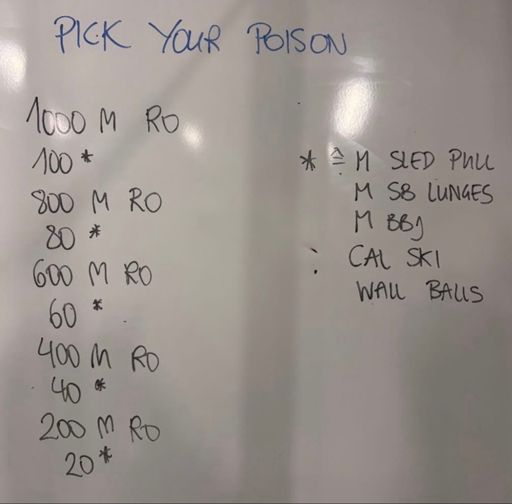 PICK YOUR POISON
1000 M RO
100 *
800 M RO
80 *
600 M RO
60 *
400 M RO
40 *
200 M RO
20 *
* ≙ M SLED PULL
M SB LUNGES
M BBJ
CAL SKI
WALL BALLS